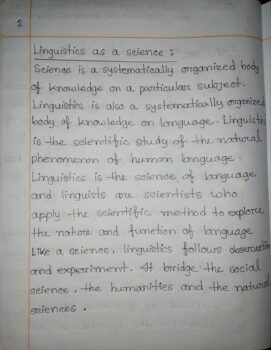 2
Linguistics as a science :
Science is a systematically organized body
of knowledge on a particular subject.
Linguistics is also a systematically organized
body of knowledge on language. Linguistics
is the scientific study of the natural
phenomenon of human language.
Linguistics is the science of language
and linguists are scientists who
apply the scientific method to explore
the nature and function of language
Like a science, linguistics follows observation
and experiment. It bridge the social
science, the humanities and the natural
sciences.